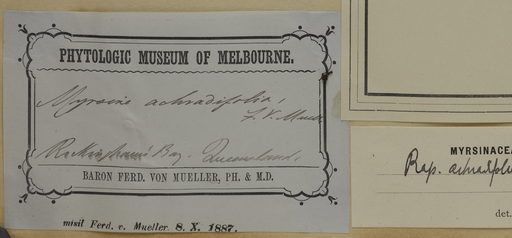 PHYTOLOGIC MUSEUM OF MELBOURNE.
Myrsine achradifolia,
F. v. Muell
Rockingham Bay. Queensland.
BARON FERD. VON MUELLER, PH. & M.D.
misit Ferd. v. Mueller. 8. X. 1887.
MYRSINACEA
Rap. achradifoli
det.